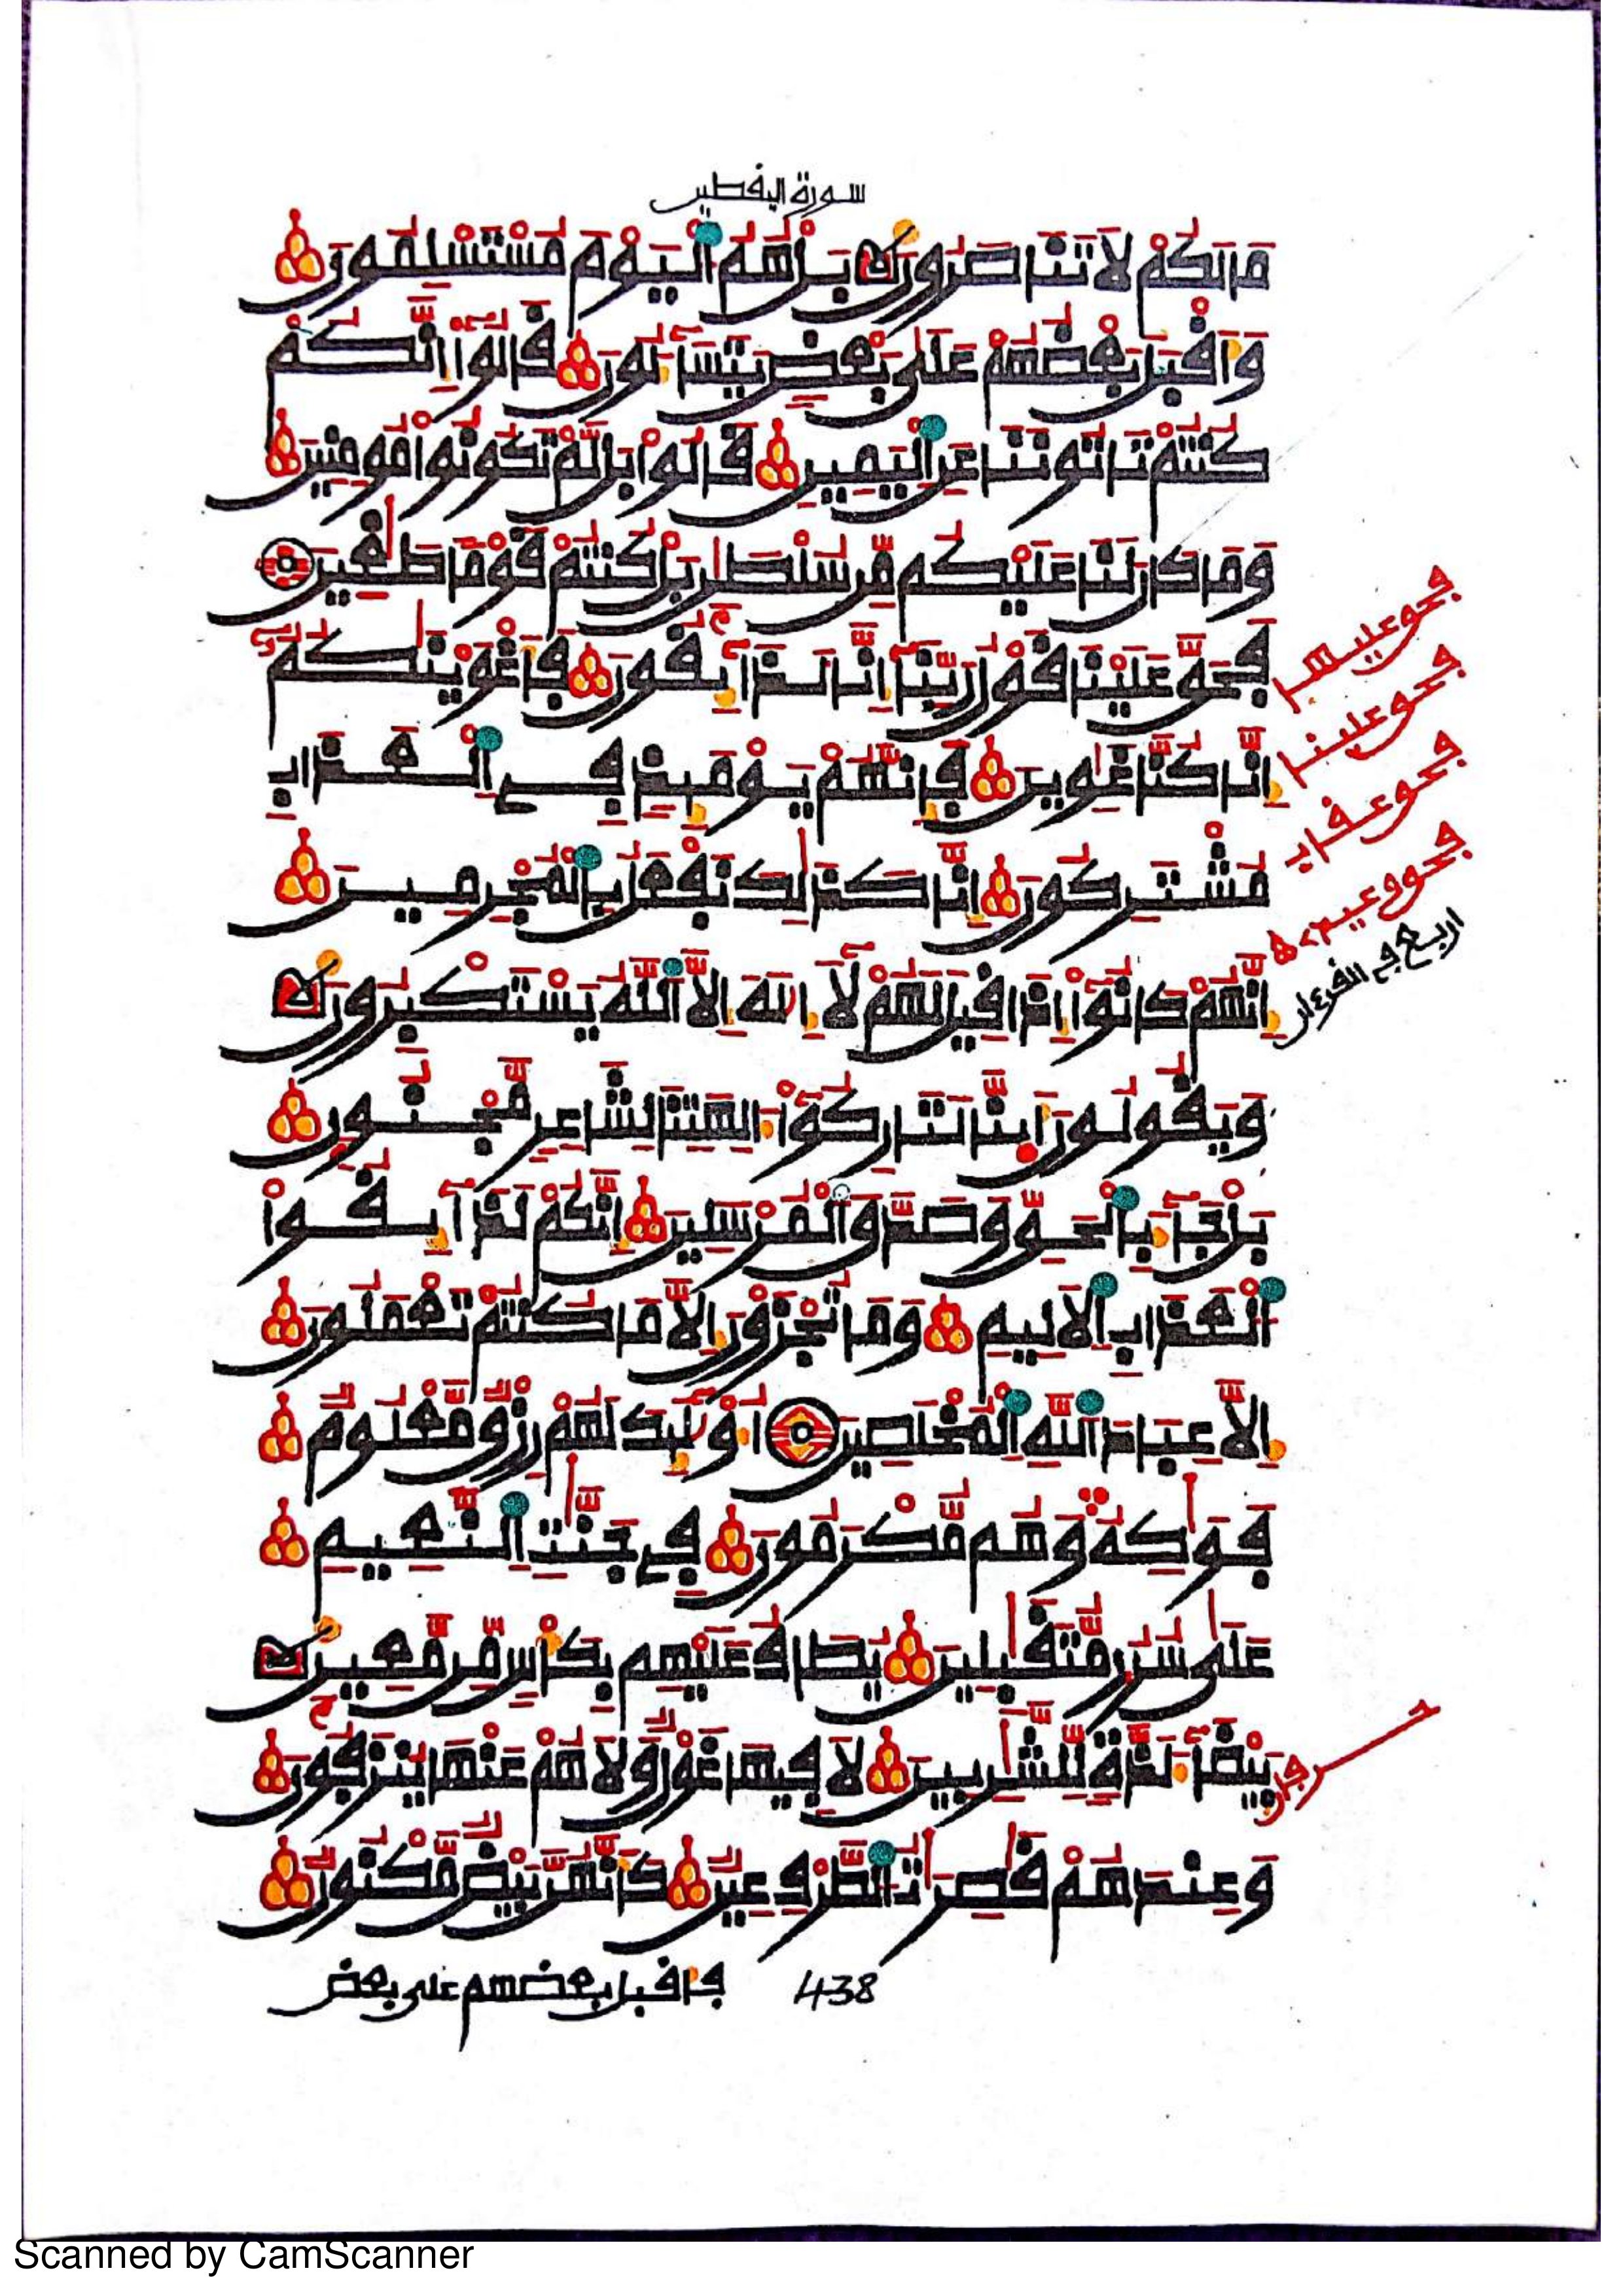 سورة اليفطير
مَا لَكُمْ لَا تَنَاصَرُونَ بَلْ هُمُ الْيَوْمَ مُسْتَسْلِمُونَ
وَأَقْبَلَ بَعْضُهُمْ عَلَىٰ بَعْضٍ يَتَسَاءَلُونَ قَالُوا إِنَّكُمْ
كُنتُمْ تَاتُونَنَا عَنِ الْيَمِينِ قَالُوا بَل لَّمْ تَكُونُوا مُومِنِينَ
وَمَا كَانَ لَنَا عَلَيْكُم مِّن سُلْطَانٍ بَلْ كُنتُمْ قَوْمًا طَاغِينَ
فَحَقَّ عَلَيْنَا قَوْلُ رَبِّنَا إِنَّا لَذَائِقُونَ فَأَغْوَيْنَاكُمْ
إِنَّا كُنَّا غَاوِينَ فَإِنَّهُمْ يَوْمَئِذٍ فِي الْعَذَابِ
مُشْتَرِكُونَ إِنَّا كَذَٰلِكَ نَفْعَلُ بِالْمُجْرِمِينَ
إِنَّهُمْ كَانُوا إِذَا قِيلَ لَهُمْ لَا إِلَٰهَ إِلَّا اللَّهُ يَسْتَكْبِرُونَ
وَيَقُولُونَ أَئِنَّا لَتَارِكُوا آلِهَتِنَا لِشَاعِرٍ مَّجْنُونٍ
بَلْ جَاءَ بِالْحَقِّ وَصَدَّقَ الْمُرْسَلِينَ إِنَّكُمْ لَذَائِقُوا
الْعَذَابِ الْأَلِيمِ وَمَا تُجْزَوْنَ إِلَّا مَا كُنتُمْ تَعْمَلُونَ
إِلَّا عِبَادَ اللَّهِ الْمُخْلَصِينَ أُولَٰئِكَ لَهُمْ رِزْقٌ مَّعْلُومٌ
فَوَاكِهُ وَهُم مُّكْرَمُونَ فِي جَنَّاتِ النَّعِيمِ
عَلَىٰ سُرُرٍ مُّتَقَابِلِينَ يُطَافُ عَلَيْهِم بِكَأْسٍ مِّن مَّعِينٍ
بَيْضَاءَ لَذَّةٍ لِّلشَّارِبِينَ لَا فِيهَا غَوْلٌ وَلَا هُمْ عَنْهَا يُنزَفُونَ
وَعِندَهُمْ قَاصِرَاتُ الطَّرْفِ عِينٌ كَأَنَّهُنَّ بَيْضٌ مَّكْنُونٌ
فأقبل بعضهم على بعض
438
فحق عليها
فحق علينا
فحق عقاب
فحق وعيد
اربع في القرءان
Scanned by CamScanner